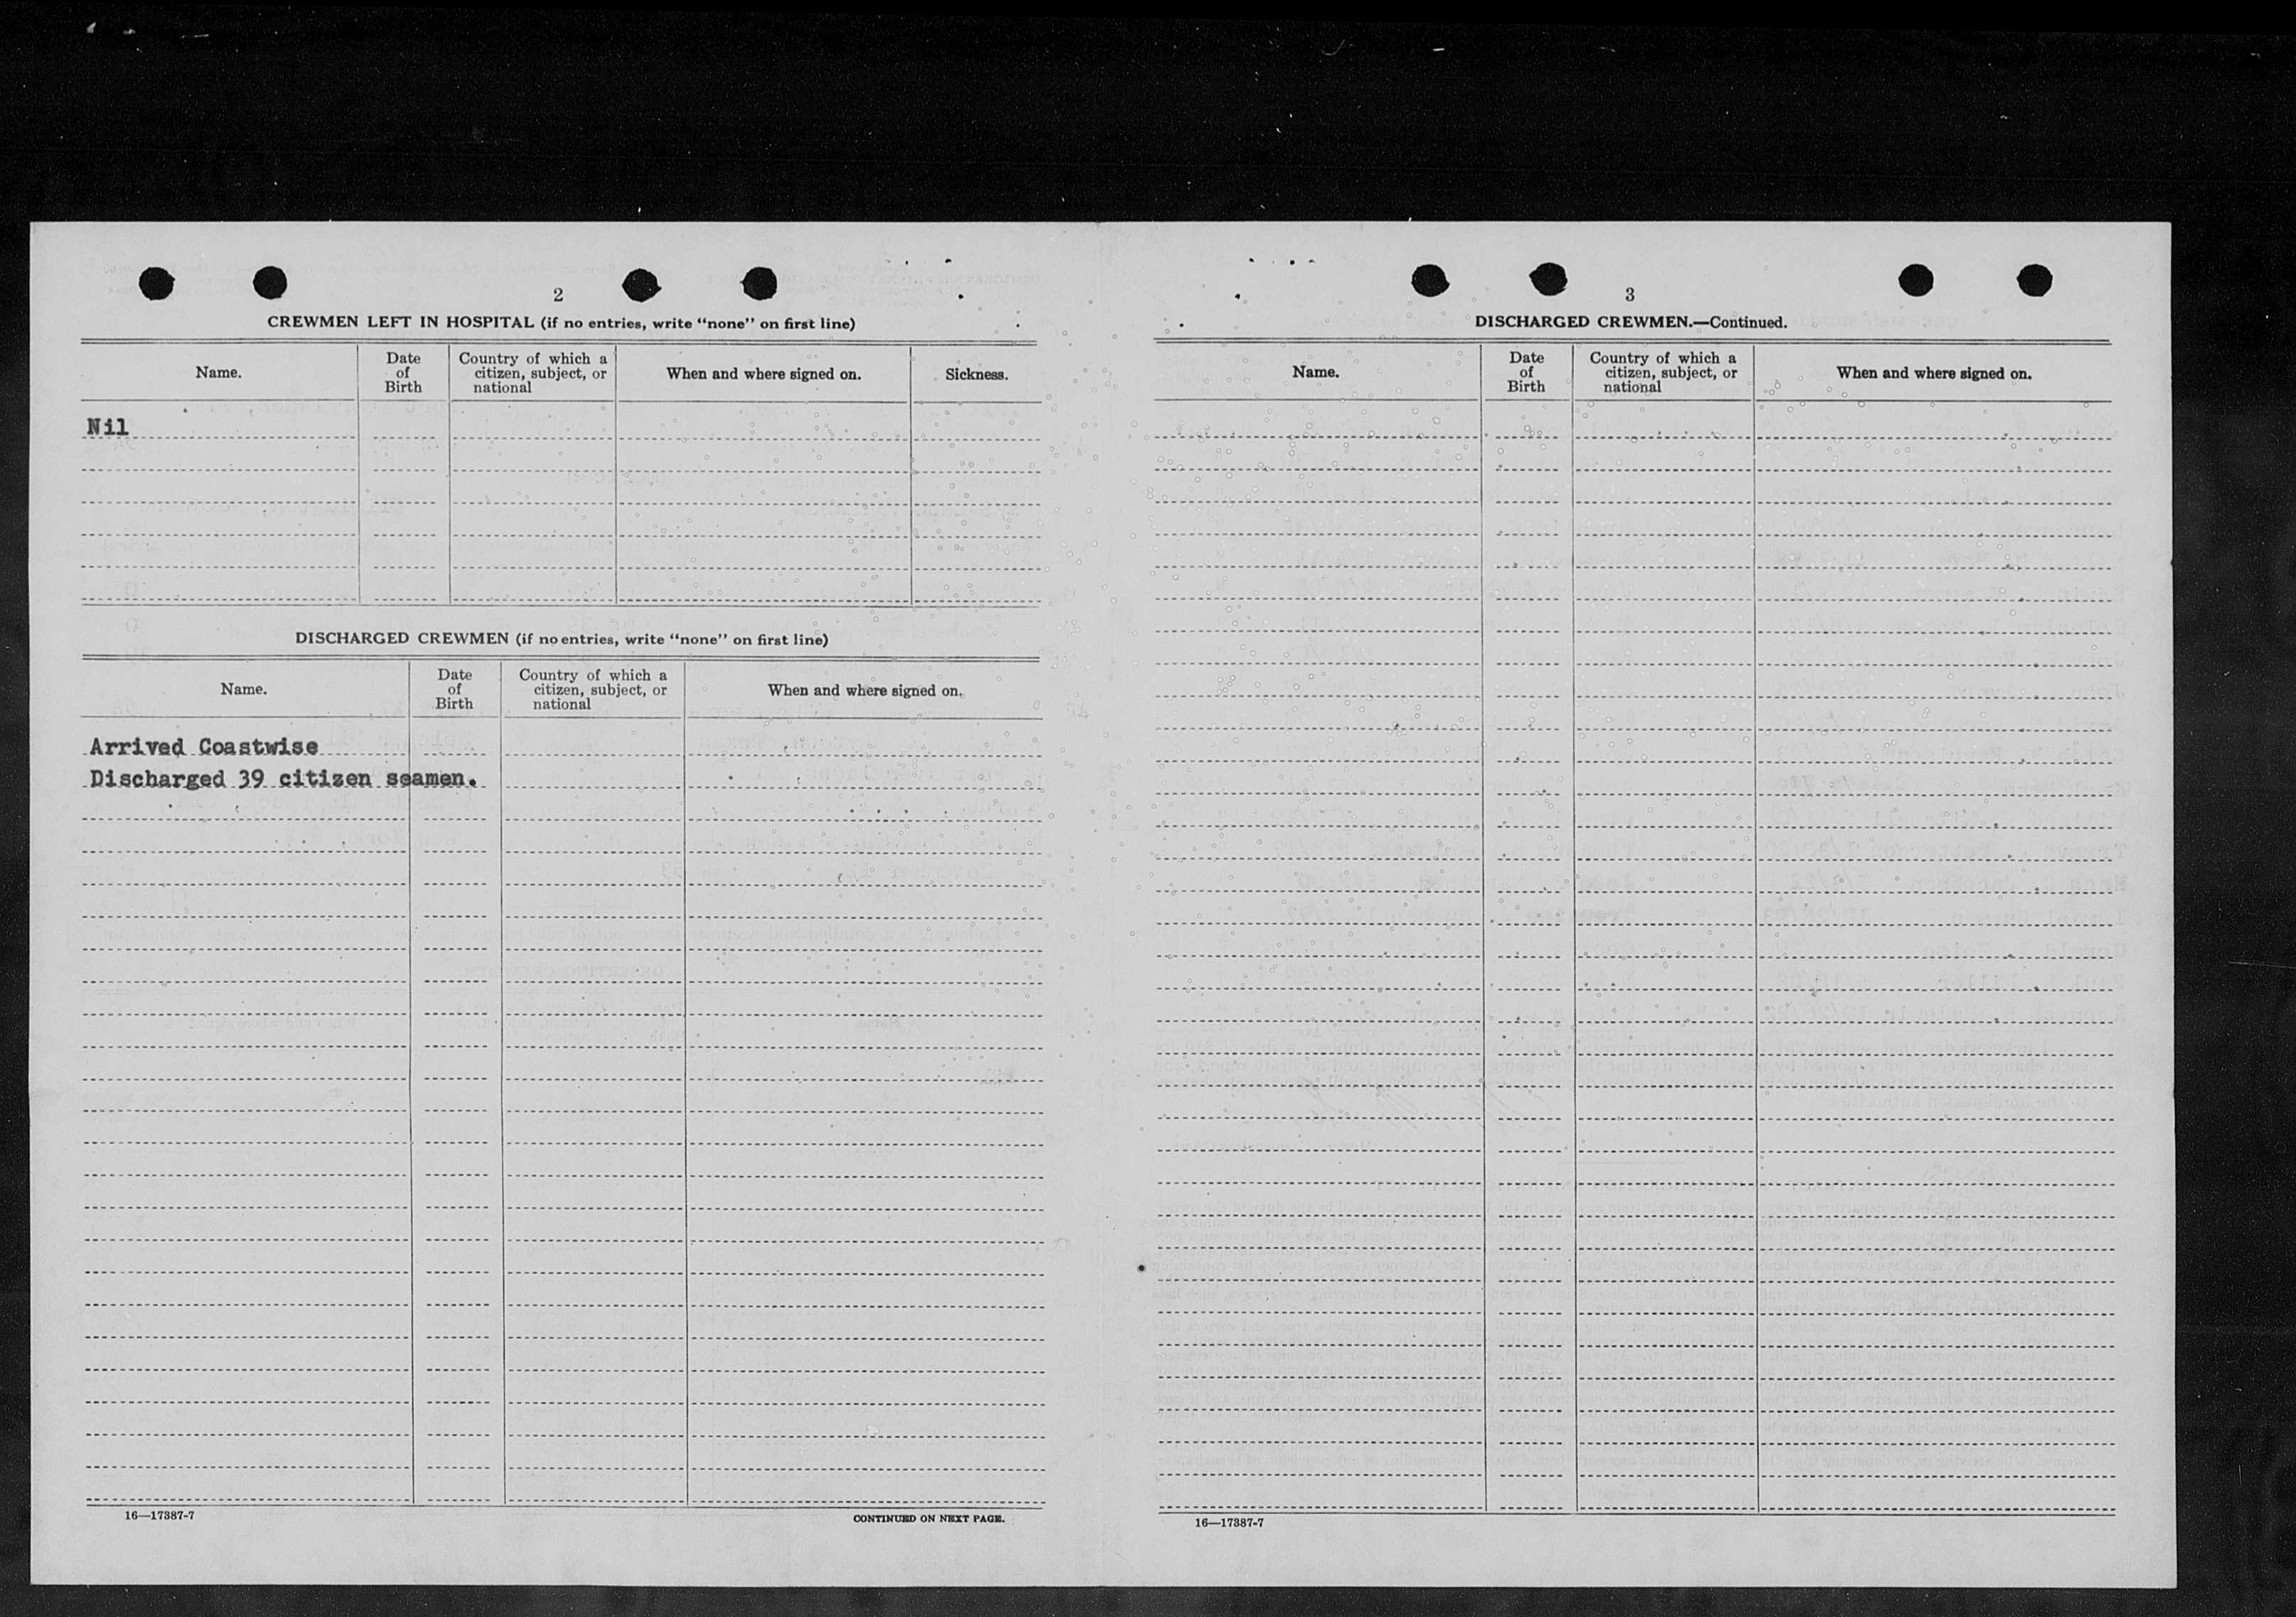 2
CREWMEN LEFT IN HOSPITAL (if no entries, write "none" on first line)
Name.
Date of Birth
Country of which a citizen, subject, or national
When and where signed on.
Sickness.
Nil
DISCHARGED CREWMEN (if no entries, write "none" on first line)
Name.
Date of Birth
Country of which a citizen, subject, or national
When and where signed on.
Arrived Coastwise
Discharged 39 citizen seamen.
16—17387-7
CONTINUED ON NEXT PAGE.
3
DISCHARGED CREWMEN.—Continued.
Name.
Date of Birth
Country of which a citizen, subject, or national
When and where signed on.
16—17387-7